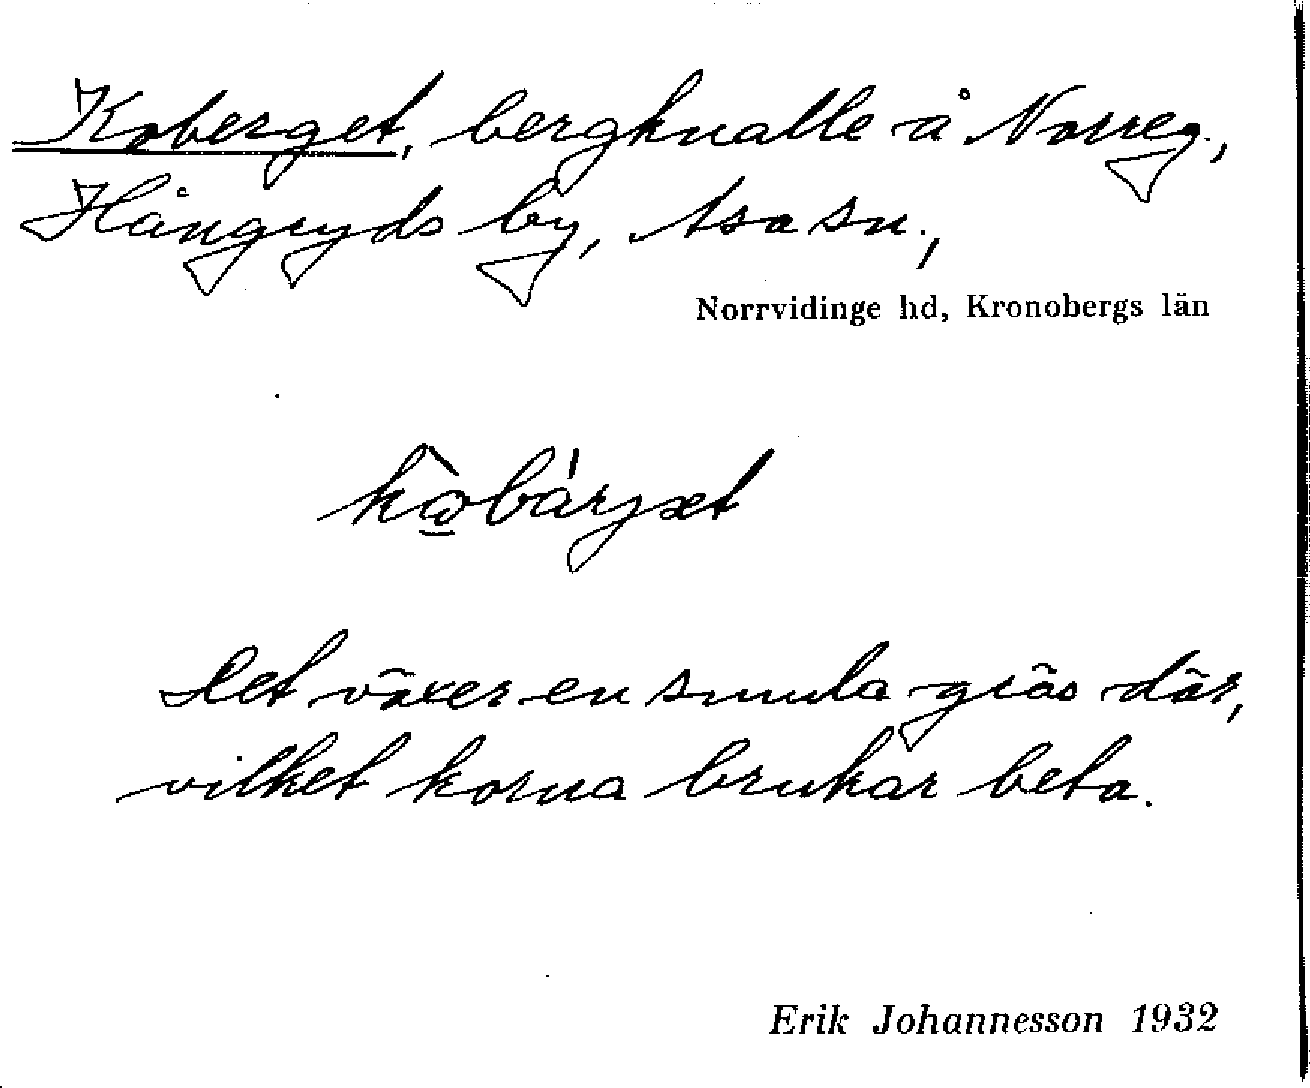 Koberget, bergknalle å Norreg.,
Hångryds by, Asa sn.,
Norrvidinge hd, Kronobergs län
Det växer en smula gräs där,
vilket korna brukar beta.
Erik Johannesson 1932